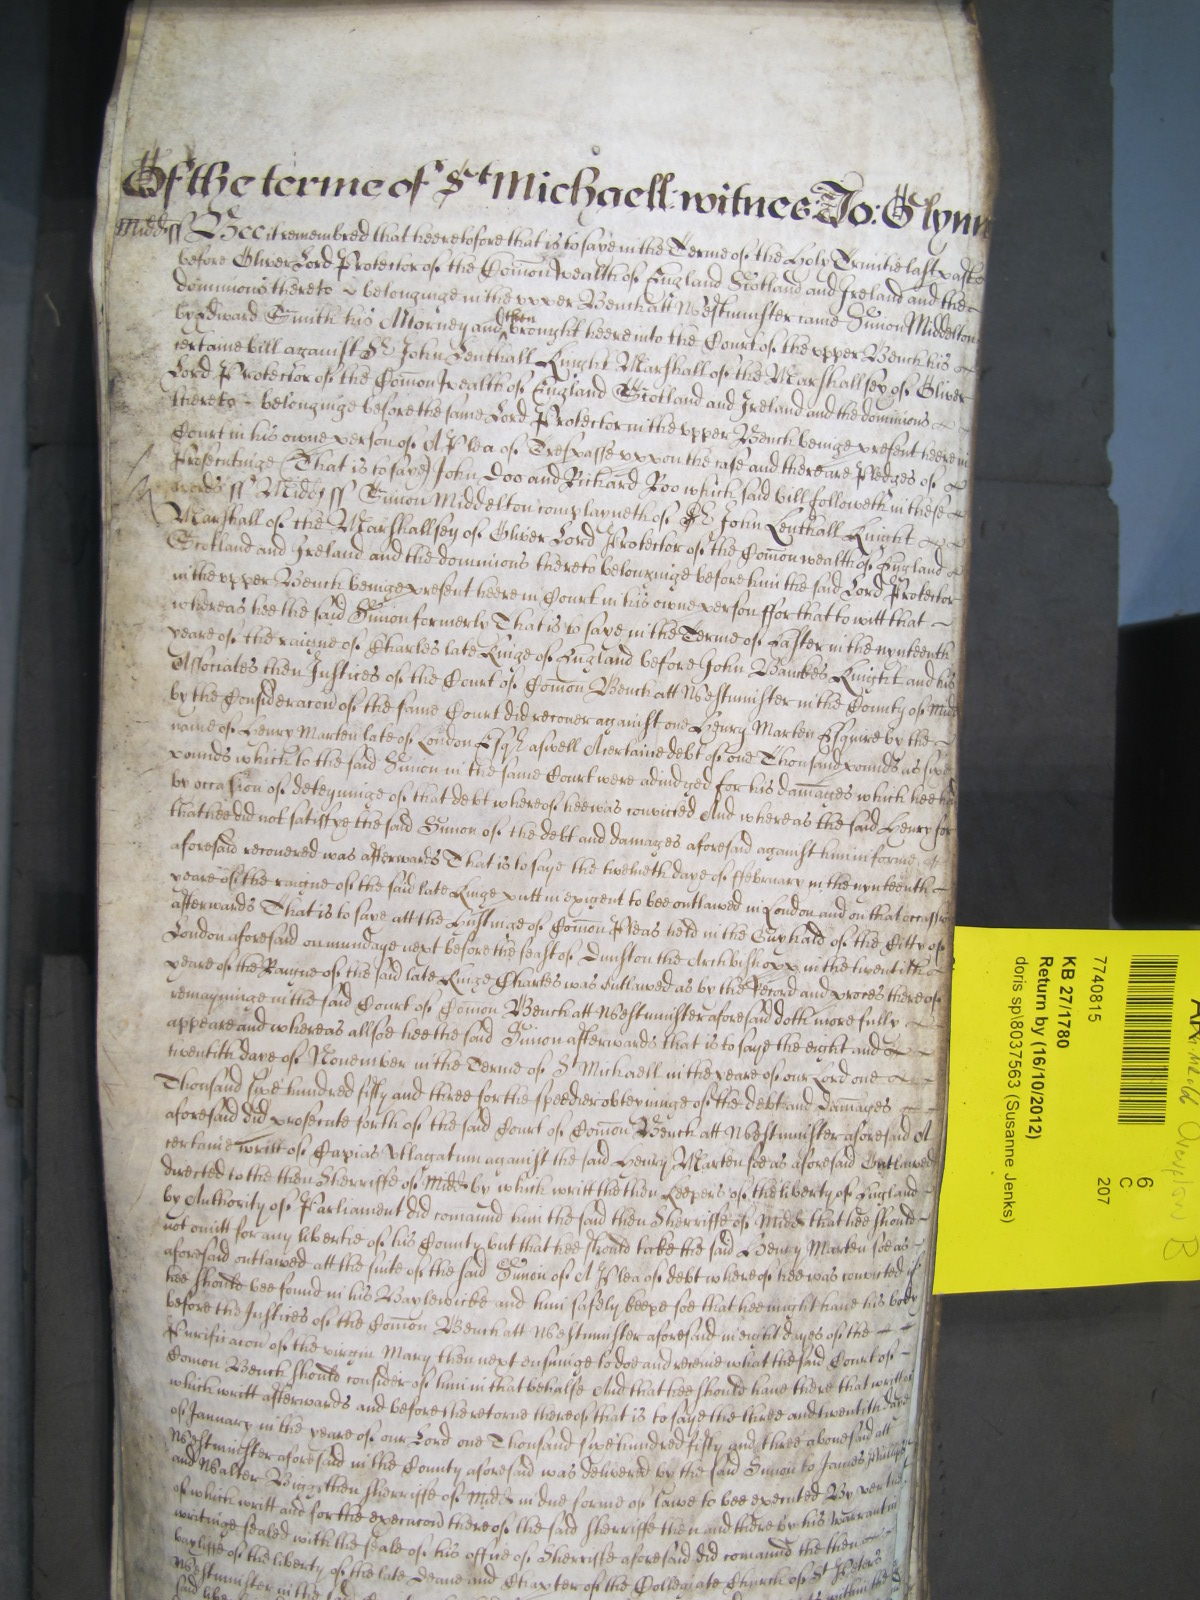 Of the terme of St Michaell: witnes: Jo: Glynn
Midd ss Bee it remembred that heeretofore that is to saye in the Terme of the Holy Trinitie last past
before Oliver Lord Protector of the Comon wealth of England Scotland and Ireland and the
dominions thereto belonginge in the upper Bench att Westminster came Simon Middelton
by Edward Smith his Attorney and then brought heere into the Court of the upper Bench his
certaine bill against Sr John Lenthall Knight Marshall of the Marshallsey of Oliver
Lord Protector of the Comon wealth of England Scotland and Ireland and the dominions
thereto belonginge before the same Lord Protector in the upper Bench beinge present heere in
Court in his owne person of A Plea of Trespasse uppon the case and there are Pledges of
Prosecutinge (That is to saye) John Doo and Richard Roo which said bill followeth in these
words ss Midd ss Simon Middelton complayneth of Sr John Lenthall Knight
Marshall of the Marshallsey of Oliver Lord Protector of the Comon wealth of England
Scotland and Ireland and the dominions thereto belonginge before him the said Lord Protector
in the upper Bench beinge present heere in Court in his owne person ffor that to witt that
whereas hee the said Simon formerly That is to saye in the Terme of Easter in the nynteenth
yeare of the raigne of Charles late Kinge of England before John Banckes Knight and his
Associates then Justices of the Court of Comon Bench att Westminster in the County of Midd
by the Consideracon of the same Court did recover against one Henry Marten Esquire by the
name of Henry Marten late of London Esqr aswell A certaine debt of one Thousand pounds as
pounds which to the said Simon in the same Court were adiudged for his damages which hee had
by occasion of deteyninge of that debt whereof hee was convicted And whereas the said Henry for
that hee did not satisfye the said Simon of the debt and damages aforesaid against him in forme
aforesaid recovered was afterwards That is to saye the twelveth daye of ffebruary in the nynteenth
yeare of the raigne of the said late Kinge putt in exigent to bee outlawed in London and on that occasion
afterwards That is to saye att the Hustinge of Comon Pleas held in the Guyhald of the Citty of
London aforesaid on mundaye next before the feast of Dunston the Archbishopp in the twentith
yeare of the Raigne of the said late Kinge Charles was Outlawed as by the Record and proces thereof
remayninge in the said Court of Comon Bench att Westminster aforesaid doth more fully
appeare and whereas allsoe hee the said Simon afterwards that is to saye the eight and
twentith daye of November in the Terme of St Michaell in the yeare of our Lord one
Thousand sixe hundred fifty and three for the speedier obteyninge of the debt and damages
aforesaid did prosecute forth of the said Court of Comon Bench att Westminster aforesaid A
certaine writt of Capias Utlagatum against the said Henry Marten soe as aforesaid Outlawed
directed to the then Sherriffe of Midd by which writt the then Keepers of the liberty of England
by Authority of Parliament did comaund him the said then Sherriffe of Midd that hee should
not omitt for any libertie of his County but that hee should take the said Henry Marten soe as
aforesaid outlawed att the suite of the said Simon of A Plea of debt whereof hee was convicted if
hee should bee found in his Baylewicke and him safely keepe soe that hee might have his body
before the Justices of the Comon Bench att Westminster aforesaid in eight dayes of the
Purificacon of the virgin Mary then next ensuinge to doe and receive what the said Court of
Comon Bench should consider of him in that behalfe And that hee should have there that writt
which writt afterwards and before the retorne thereof that is to saye the three and twentith daye
of January in the yeare of our Lord one Thousand sixe hundred fifty and three abovesaid att
Westminster aforesaid in the County aforesaid was delivered by the said Simon to James Phillips
and Walter Bigg then sherriffe of Midd in due forme of lawe to bee executed By vertue
of which writt and for the execucon thereof the said sherriffe then and there by his warrant in
writinge sealed with the seale of his office of Sherriffe aforesaid did comaund the then
bayliffe of the liberty of the late Deane and Chapter of the Collegiate Church of St Peters
Westminster in the within the
said
7740815
KB 27/1780
Return by (16/10/2012)
doris sp\8037563 (Susanne Jenks)
6
C
207